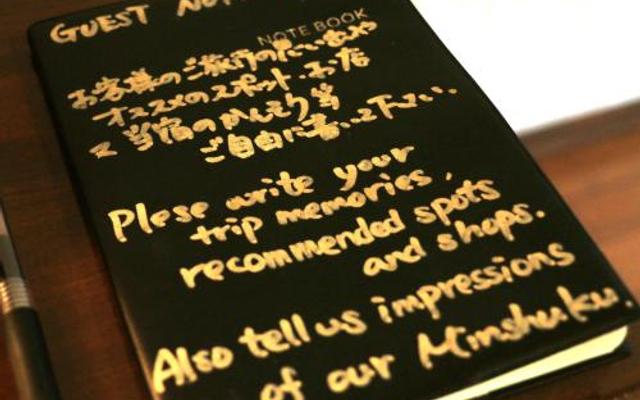 GUEST NOT
NOTE BOOK
お客様のご旅行の思い出や
オススメのスポット・お店
当宿のかんそう等
ご自由に書いて下さい。
Plese write your
trip memories,
recommended spots
and shops.
Also tell us impressions
of our Minshuku.